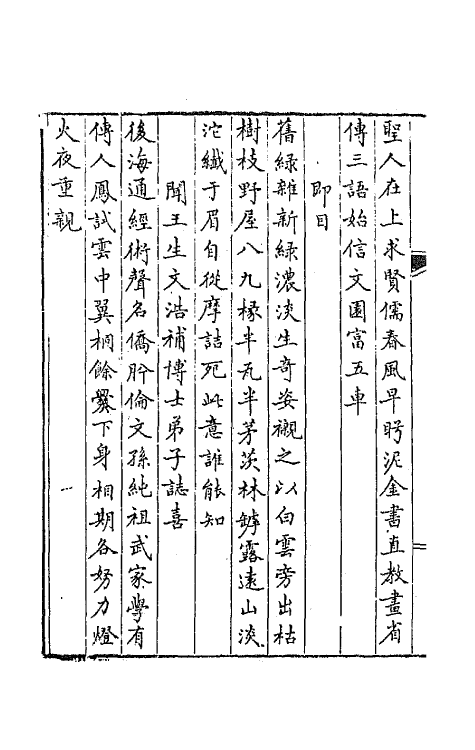 聖人在上求賢儒春風早盻泥金書直教畫省
傳三語始信文園富五車
即目
舊綠雜新綠濃淡生奇姿襯之以白雲旁出枯
樹枝野屋八九椽半瓦半茅茨林罅露遠山淡
沱纖于眉自從摩詰死此意誰能知
聞王生文浩補博士弟子誌喜
後海通經術聲名僑肸倫文孫純祖武家學有
傳人鳳試雲中翼桐餘爨下身相期各努力燈
火夜重親